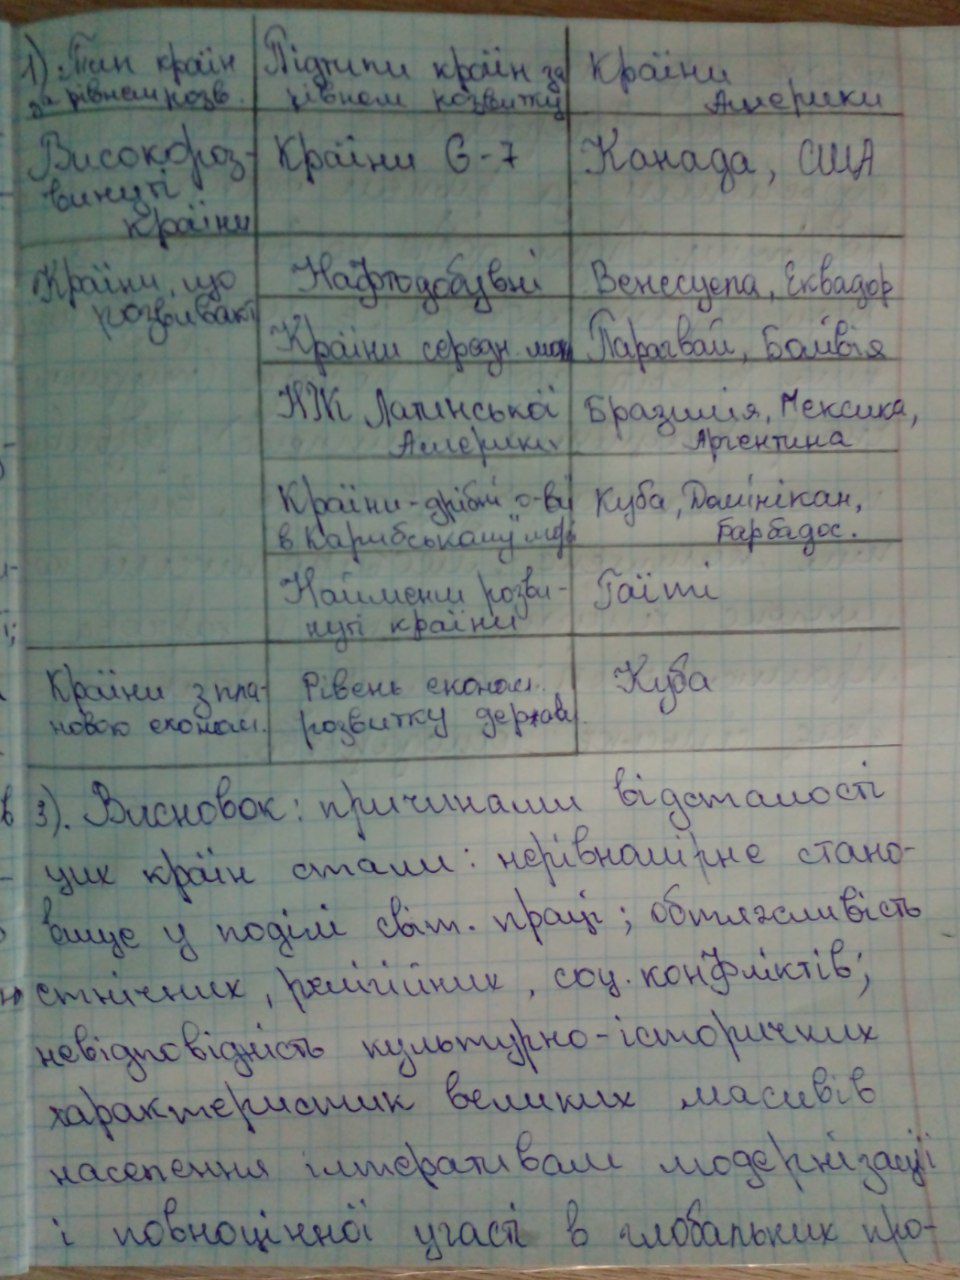 1). Тип країн
за рівнем розв.
Підтипи країн за
рівнем розвитку
Країни
Америки
Високороз-
винуті
країни
Країни G-7
Канада, США
Країни, що
розвивают
Нафтодобувні
Венесуела, Еквадор
Країни середн. мож
Парагвай, Болівія
НІК Латинської
Америки
Бразилія, Мексика,
Аргентина
Країни-дрібні о-ви
в Карибському морі
Куба, Домінікан,
Барбадос.
Найменш розви-
нуті країни
Гаїті
Країни з пла-
новою економ.
Рівень економ.
розвитку держави
Куба
3). Висновок: причинами відсталості
цих країн стали: нерівномірне стано-
вище у поділі світ. праці; обтяжливість
етнічних, релігійних, соц. конфліктів;
невідповідність культурно-історичних
характеристик великих масивів
населення імперативам модернізації
і повноцінної участі в глобальних про-